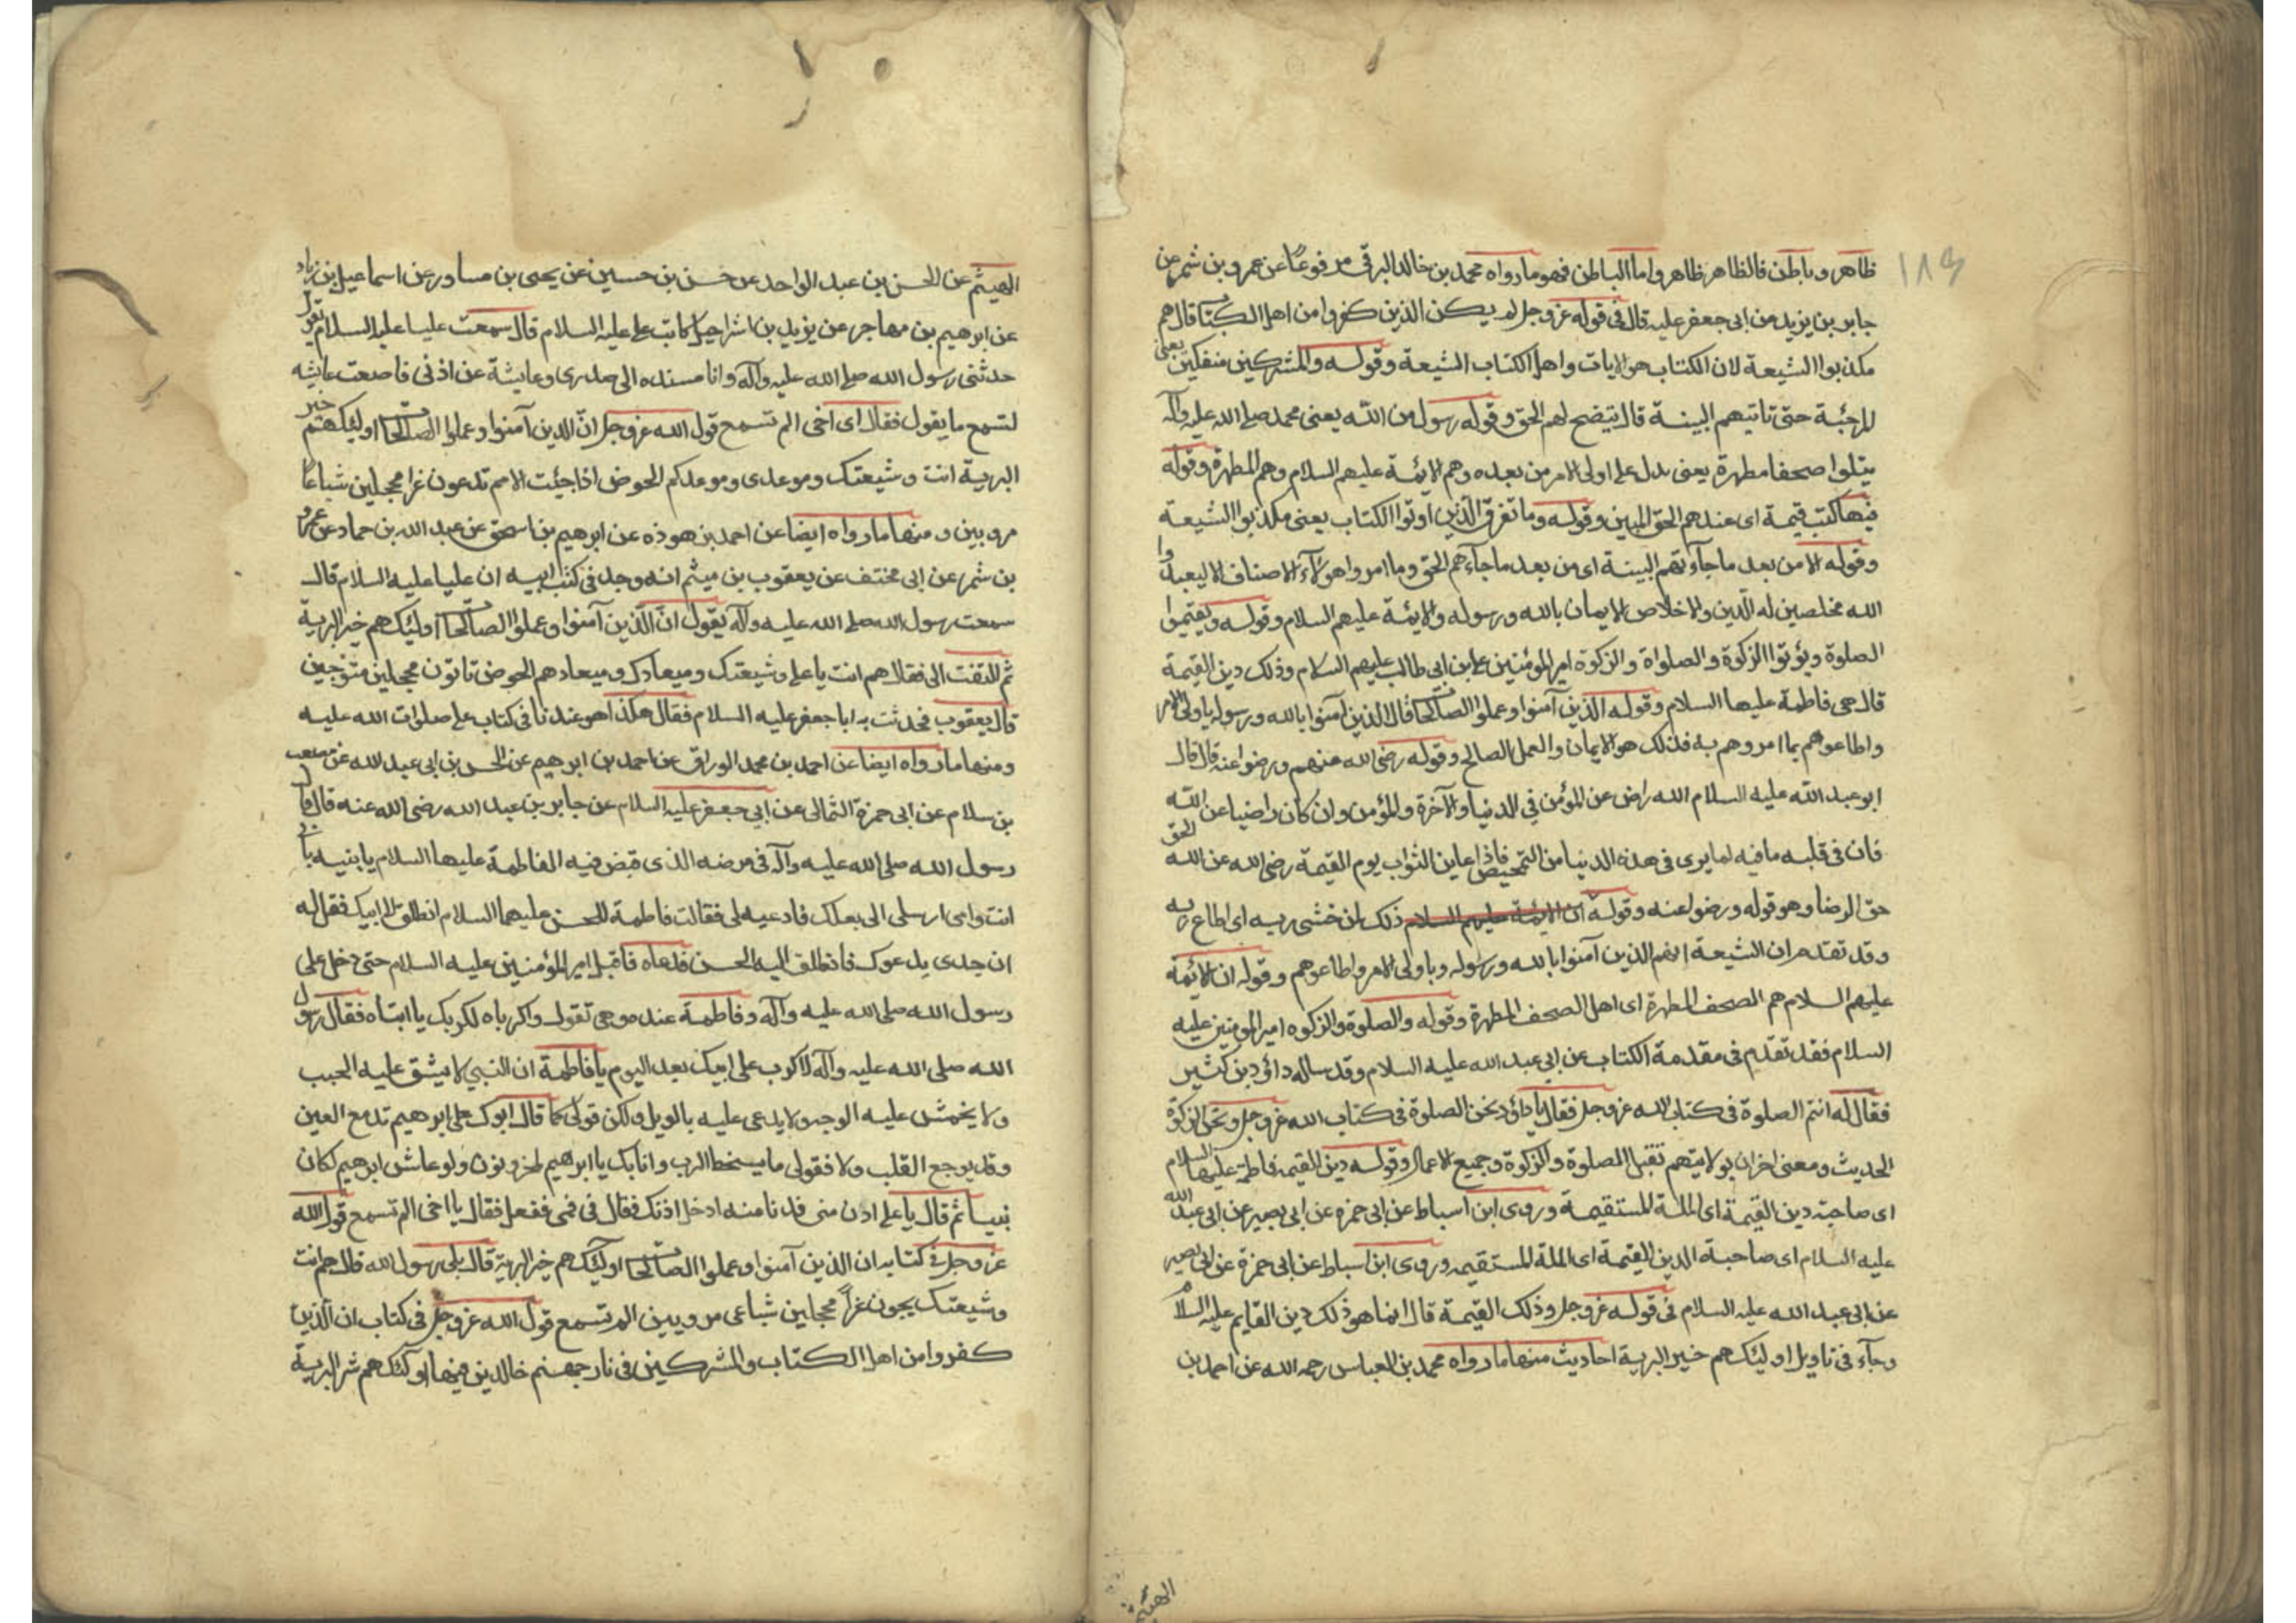 ١٨٩
ظاهر وباطن فالظاهر ظاهر واما الباطن فهو ما رواه محمد بن خالد البرقى مرفوعًا عن عمرو بن شمر عن
جابر بن يزيد من ابى جعفر عليه قال فى قوله عز وجل لم يكن الذين كفروا من اهل الكتاب قال هم
مكذبوا الشيعة لان الكتاب هو الايات واهل الكتاب الشيعة وقوله والمشركين منفكين يعنى
المرجئة حتى تاتيهم البينة قال يتضح لهم الحق وقوله رسول من الله يعنى محمد صلى الله عليه وآله
يتلوا صحفا مطهرة يعنى يدل على اولى الامر من بعده وهم الايمة عليهم السلام وهم المطهرة وقوله
فيها كتب قيمة اى عندهم الحق المبين وقوله وما تفرق الذين اوتوا الكتاب يعنى مكذبوا الشيعة
وقوله الا من بعد ما جآءتهم البينة اى من بعد ما جآءهم الحق وما امروا هؤلآء الاصناف الا ليعبدوا
الله مخلصين له الدين والاخلاص الايمان بالله ورسوله والايمة عليهم السلام وقوله ويقيموا
الصلوة ويؤتوا الزكوة والصلواة والزكوة امير المؤمنين على ابن ابى طالب عليهم السلام وذلك دين القيمة
قال هى فاطمة عليها السلام وقوله الذين آمنوا وعملوا الصالحات قال الذين آمنوا بالله ورسوله باولى الامر
واطاعوهم بما امروهم به فذلك هو الايمان والعمل الصالح وقوله رضى الله عنهم ورضوا عنه قال قال
ابو عبد الله عليه السلام الله راض عن المؤمن في الدنيا والآخرة والمؤمن وان كان راضيا عن الله
فان فى قلبه ما فيه لما يرى فى هذه الدنيا من التمحيص فاذا عاين الثواب يوم القيمة رضى الله عن الله الحق
حق الرضا وهو قوله ورضوا عنه وقوله ان الايمة عليهم السلام ذلك لمن خشى ربه اى اطاع ربه
وقد تقدم ان الشيعة انهم الذين آمنوا بالله ورسوله وباولى الامر واطاعوهم وقوله ان الائمة
عليهم السلام هم الصحف المطهرة اى اهل الصحف المطهرة وقوله والصلوة والزكوه امير المومنين عليه
السلام فقد تقدم فى مقدمة الكتاب عن ابي عبد الله عليه السلام وقد ساله داؤد بن كثير
فقال له انتم الصلوة فى كتاب الله عز وجل فقال يا داؤد نحن الصلوة فى كتاب الله عز وجل ونحن الزكوة
الحديث ومعنى اخر ان بولايتهم تقبل الصلوة والزكوة وجميع الاعمال وقوله دين القيمه فاطمة عليها السلام
اى صاحبة دين القيمة اى الملة المستقيمة وروى ابن اسباط عن ابى حمزه عن ابى بصير عن ابى عبد الله
عليه السلام اى صاحبة الدين القيمة اى الملة المستقيمه وروى ابن اسباط عن ابى حمزة عن ابى بصير
عن ابى عبد الله عليه السلام فى قوله عز وجل وذلك القيمة قال انما هو ذلك دين القايم عليه السلام
وجآء فى تاويل اولئك هم خير البرية احاديث منها ما رواه محمد بن العباس رحمه الله عن احمد بن
الهيثم
الهيثم عن الحسن بن عبد الواحد عن حسن بن حسين عن يحيى بن مساور عن اسماعيل بن زياد
عن ابرهيم بن مهاجر عن يزيد بن اشراحيل كاتب على عليه السلام قال سمعت عليا عليه السلام يقول
حدثنى رسول الله صلى الله عليه وآله وانا مسنده الى صدرى وعايشة عن اذنى فاصغت عايشه
لتسمع ما يقول فقال اى اخى الم تسمع قول الله عز وجل انّ الذين آمنوا وعملوا الصالحات اولئك هم خير
البرية انت وشيعتك وموعدى وموعدكم الحوض اذا جيئت الامم تدعون غرا محجلين شباعًا
مرويين ومنها ما رواه ايضا عن احمد بن هوذه عن ابرهيم بن اسحق عن عبد الله بن حماد عن عمرو
بن شمر عن ابى مخنف عن يعقوب بن ميثم انه وجد فى كتب ابيه ان عليا عليه السلام قال
سمعت رسول الله صلى الله عليه وآله يقول انّ الذين آمنوا وعملوا الصالحات اولئك هم خير البرية
ثم التفت الى فقال هم انت يا على وشيعتك وميعادك وميعادهم الحوض تاتون محجلين متوجين
قال يعقوب فحدثت به ابا جعفر عليه السلام فقال هكذا هو عندنا فى كتاب على صلوات الله عليه
ومنها ما رواه ايضا عن احمد بن محمد الوراق عن احمد بن ابرهيم عن الحسن بن ابى عبد الله عن مصعب
بن سلام عن ابى حمزة الثمالى عن ابي جعفر عليه السلام عن جابر بن عبد الله رضى الله عنه قال قال
رسول الله صلى الله عليه وآله فى مرضه الذى قبض فيه الفاطمة عليها السلام يا بنيه بابى
انت وامى ارسلى الى بعلك فادعيه لى فقالت فاطمة للحسن عليهما السلام انطلق الى ابيك فقل له
ان جدى يدعوك فانطلق اليه الحسن فدعاه فاقبل امير المؤمنين عليه السلام حتى دخل على
رسول الله صلى الله عليه وآله وفاطمة عنده وهى تقول واكرباه لكربك يا ابتاه فقال رسول
الله صلى الله عليه وآله لا كرب على ابيك بعد اليوم يا فاطمة ان النبي لا يشق عليه الجيب
ولا يخمش عليه الوجه ولا يدعى عليه بالويل ولكن قولى كما قال ابوك على ابرهيم تدمع العين
وقد يوجع القلب ولا فقولى ما يسخط الرب وانا بك يا ابرهيم لمحزونون ولو عاش ابرهيم لكان
نبيا ثم قال يا على ادن منى فدنا منه ادخل اذنك فقال فى فمى ففعل فقال يا اخى الم تسمع قول الله
عز وجل فى كتابه ان الذين آمنوا وعملوا الصالحات اولئك هم خير البرية قال بلى رسول الله قال هم انت
وشيعتك يجون غراً محجلين شباعى مرويين الم تسمع قول الله عز وجل فى كتاب ان الذين
كفروا من اهل الكتاب والمشركين فى نار جهنم خالدين فيها اولئك هم شر البرية